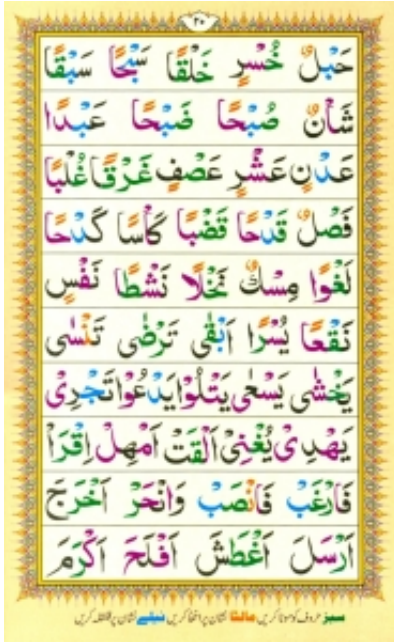 ۲۰
حَبْلٌ خُسْرٍ خَلْقًا سَبْحًا سَبْقًا
شَأْنٌ صُبْحًا ضَبْحًا عَبْدًا
عَدْنٍ عَشْرٍ عَصْفٍ غَرْقًا غُلْبًا
فَصْلٌ قَدْحًا قَضْبًا كَأْسًا كَدْحًا
لَغْوًا مِسْكٌ نَخْلًا نَشْطًا نَفْسٍ
نَقْعًا يُسْرًا اَبْقٰى تَرْضٰى تَنْسٰى
يَخْشٰى يَسْعٰى يَتْلُوْا يَدْعُوْا تَجْرِىْ
يَهْدِىْ يُغْنِىْ اَلْقَتْ اَمْهِلْ اِقْرَاْ
فَارْغَبْ فَانْصَبْ وَانْحَرْ اَخْرَجَ
اَرْسَلَ اَغْطَشَ اَفْلَحَ اَكْرَمَ
سبز حروف کو موٹا کریں مالٹا نشان پر اخفا کریں نیلے نشان پر قلقلہ کریں